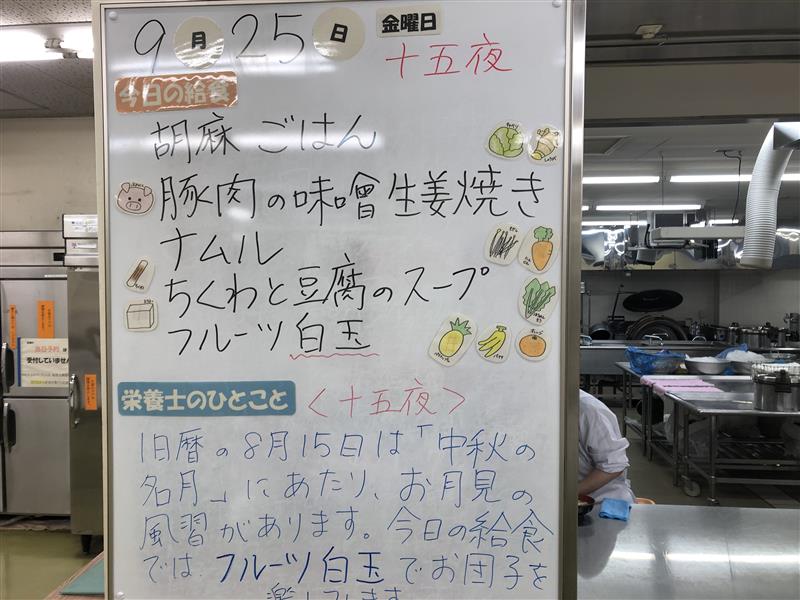 9月25日 金曜日
十五夜
今日の給食
胡麻ごはん
豚肉の味噌生姜焼き
ナムル
ちくわと豆腐のスープ
フルーツ白玉
栄養士のひとこと <十五夜>
旧暦の8月15日は「中秋の
名月」にあたり、お月見の
風習があります。今日の給食
では、フルーツ白玉でお団子を
受付していません